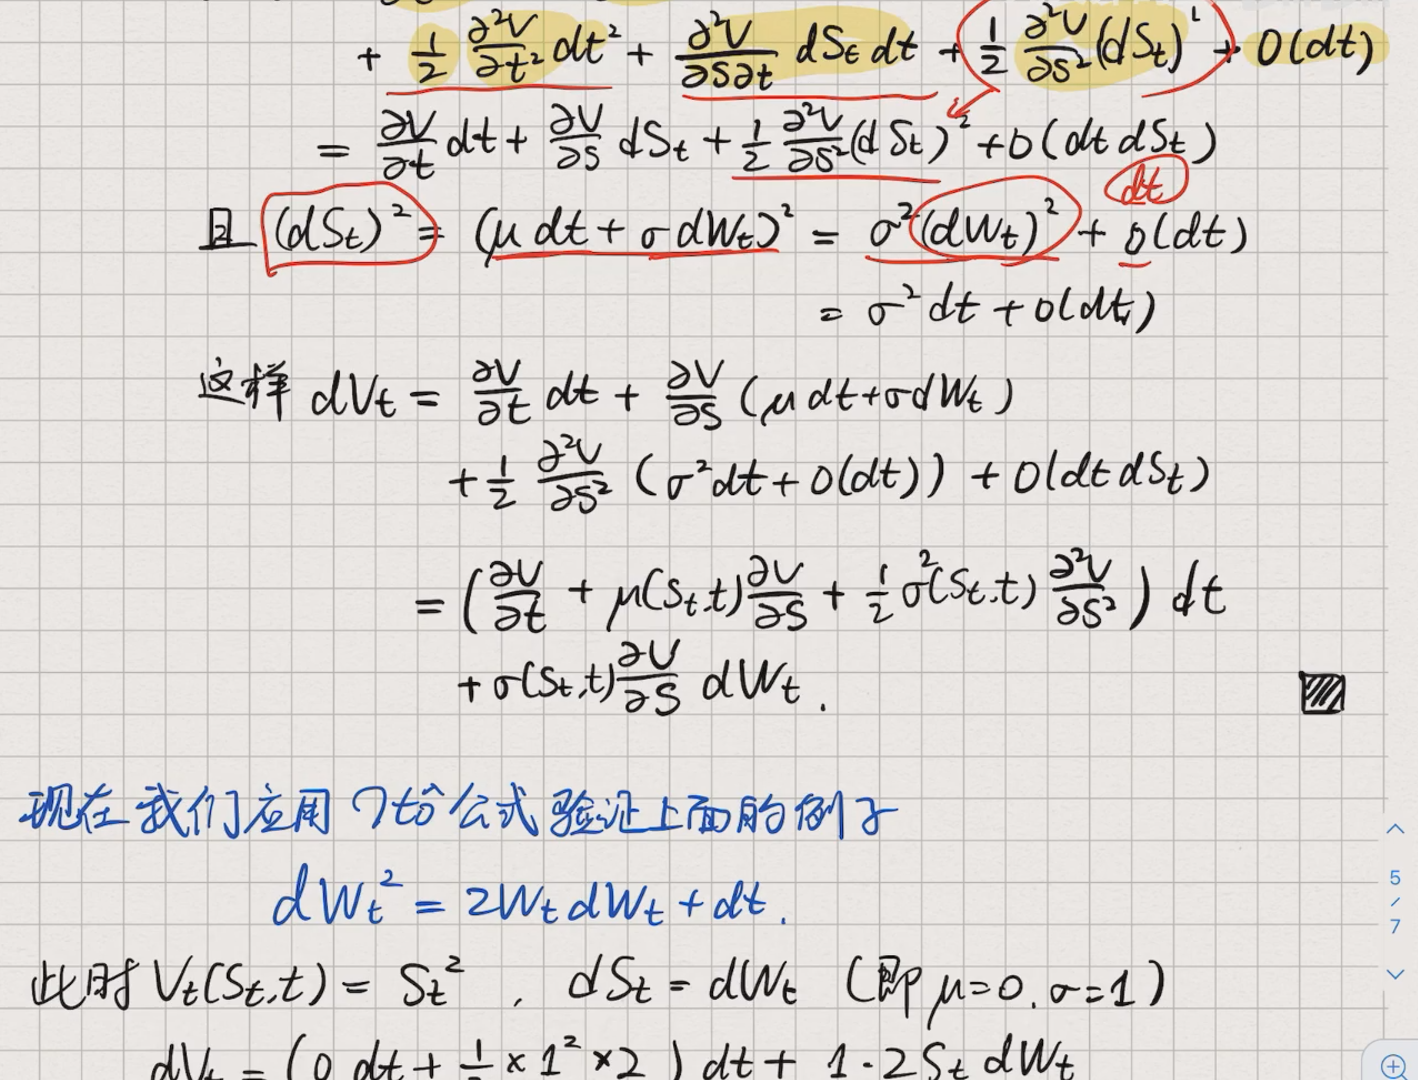 + 1/2 ∂²V/∂t² dt² + ∂²V/∂S∂t dSt dt + 1/2 ∂²V/∂S² (dSt)² + o(dt)
= ∂V/∂t dt + ∂V/∂S dSt + 1/2 ∂²V/∂S² (dSt)² + o(dt dSt)
dt
且 (dSt)² = (μ dt + σ dWt)² = σ²(dWt)² + o(dt)
= σ² dt + o(dt)
这样 dVt = ∂V/∂t dt + ∂V/∂S (μ dt + σ dWt)
+ 1/2 ∂²V/∂S² (σ² dt + o(dt)) + o(dt dSt)
= (∂V/∂t + μ(St,t) ∂V/∂S + 1/2 σ²(St,t) ∂²V/∂S²) dt
+ σ(St,t) ∂V/∂S dWt.
现在我们应用 Itô 公式验证上面的例子
dWt² = 2Wt dWt + dt.
5
/
7
此时 Vt(St,t) = St², dSt = dWt (即 μ=0, σ=1)
dVt = (0 dt + 1/2 × 1² × 2) dt + 1·2St dWt